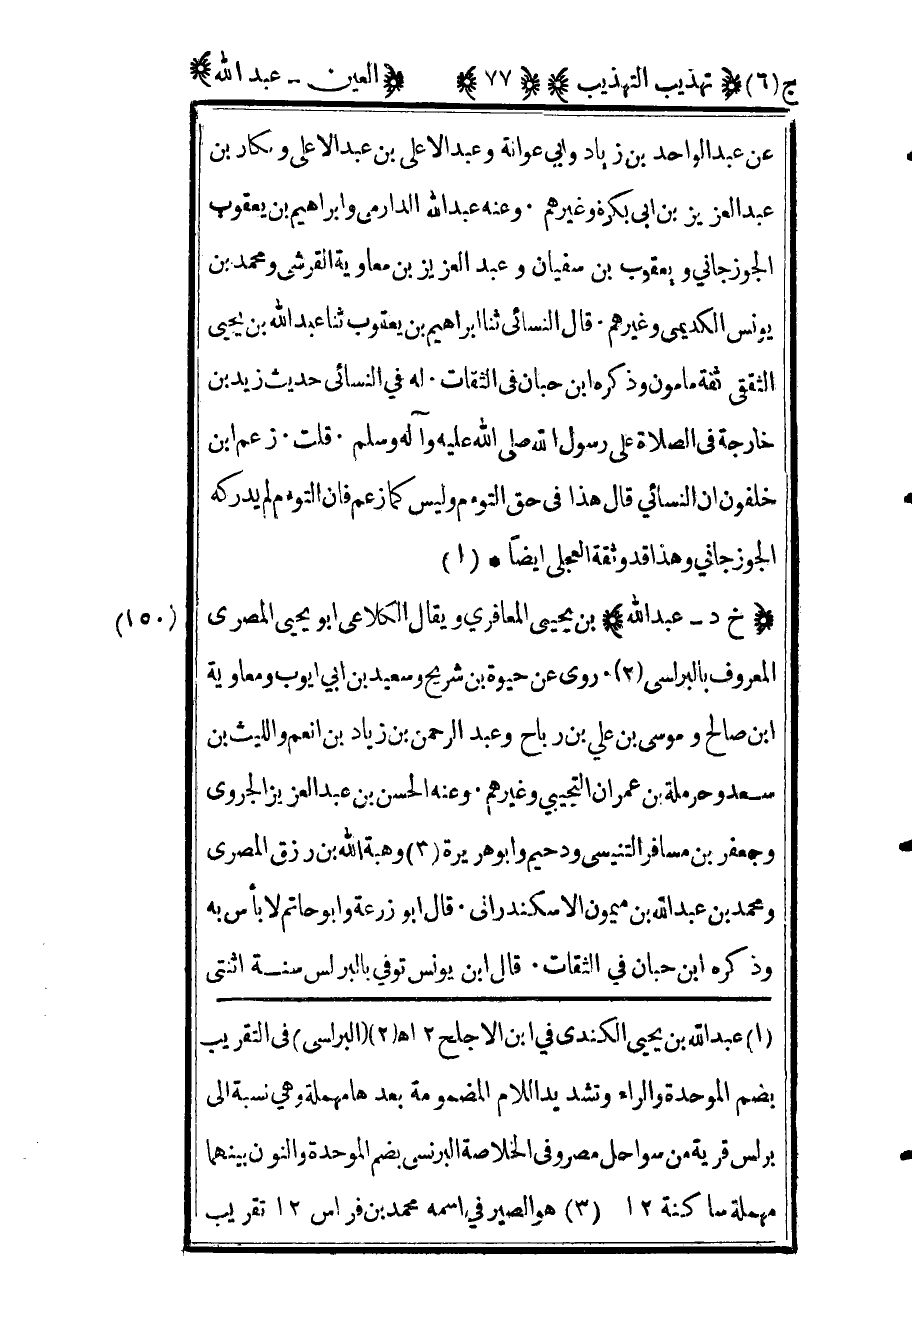 ج(٦) ﴿ تهذيب التهذيب ﴾ ﴿ ٧٧ ﴾ ﴿ العين - عبد الله ﴾
عن عبد الواحد بن زياد وابي عوانة وعبد الاعلى بن عبد الاعلى وبكار بن
عبد العزيز بن ابى بكرة وغيرهم ٠ وعنه عبد الله الدارمى وابراهيم بن يعقوب
الجوزجاني ويعقوب بن سفيان وعبد العزيز بن معاوية القرشى ومحمد بن
يونس الكديمى وغيرهم ٠ قال النسائى ثنا ابراهيم بن يعقوب ثنا عبد الله بن يحيى
الثقفى ثقة مامون وذكره ابن حبان فى الثقات ٠ له في النسائى حديث زيد بن
خارجة فى الصلاة على رسول الله صلى الله عليه وآله وسلم ٠ قلت ٠ زعم ابن
خلفون ان النسائي قال هذا فى حق التوءم وليس كما زعم فان التوءم لم يدركه
الجوزجاني وهذا قد وثقة العجلى ايضاً • (١)
﴿ خ د - عبد الله ﴾ بن يحيى المعافري ويقال الكلاعى ابو يحيى المصرى (١٥٠)
المعروف بالبرلسى (٢)٠ روى عن حيوة بن شريح وسعيد بن ابي ايوب ومعاوية
ابن صالح وموسى بن علي بن رباح وعبد الرحمن بن زياد بن انعم والليث بن
سعد وحرملة بن عمران التجيبي وغيرهم ٠ وعنه الحسن بن عبد العزيز الجروى
وجعفر بن مسافر التنيسى ودحيم وابو هريرة (٣) وهبة الله بن رزق المصرى
ومحمد بن عبد الله بن ميمون الاسكندرانى ٠ قال ابو زرعة وابو حاتم لا بأس به
وذكره ابن حبان في الثقات ٠ قال ابن يونس توفي بالبرلس سنة اثنتى
(١) عبد الله بن يحيى الكندى في ابن الاجلح ١٢ ه (٢) (البرلسى) فى التقريب
بضم الموحدة والراء وتشديد اللام المضمومة بعدها مهملة وهي نسبة الى
برلس قرية من سواحل مصر وفى الخلاصة البرنسى بضم الموحدة والنون بينهما
مهملة ساكنة ١٢ (٣) هو الصير في اسمه محمد بن فراس ١٢ تقريب